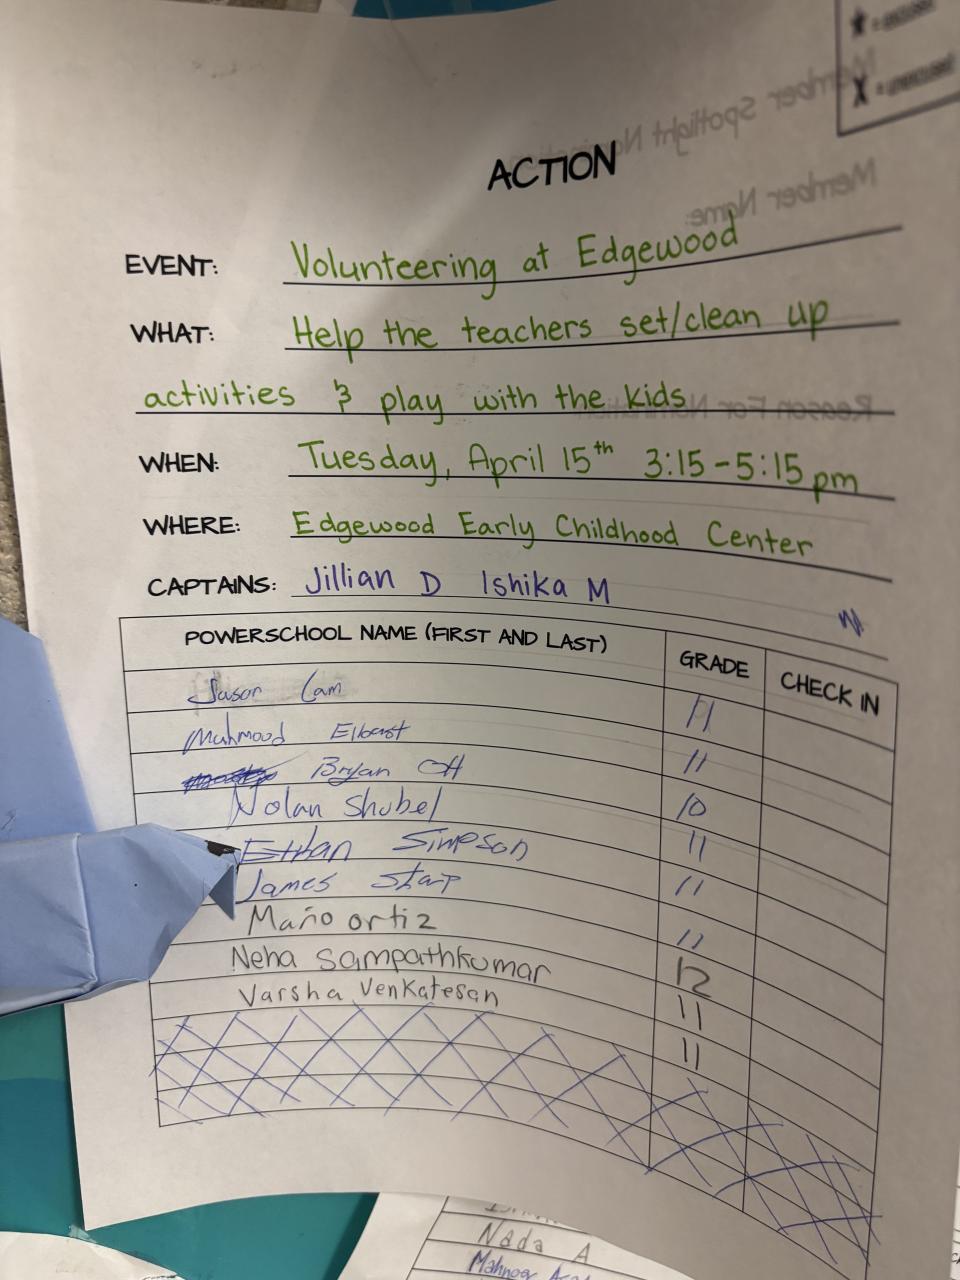 ACTION
Member Spotlight
Member Name:
EVENT: Volunteering at Edgewood
WHAT: Help the teachers set/clean up
activities & play with the kids
Reason For Nomination
WHEN: Tuesday, April 15th 3:15-5:15 pm
WHERE: Edgewood Early Childhood Center
CAPTAINS: Jillian D Ishika M
POWERSCHOOL NAME (FIRST AND LAST) GRADE CHECK IN
Jason Lam 11
Mahmood 11
Bryan Ott 10
Nolan Shubel 11
Ethan Simpson 11
James Starp 11
Maño ortiz 12
Neha Sampathkumar 11
Varsha Venkatesan 11
Nada A
Mahnoor